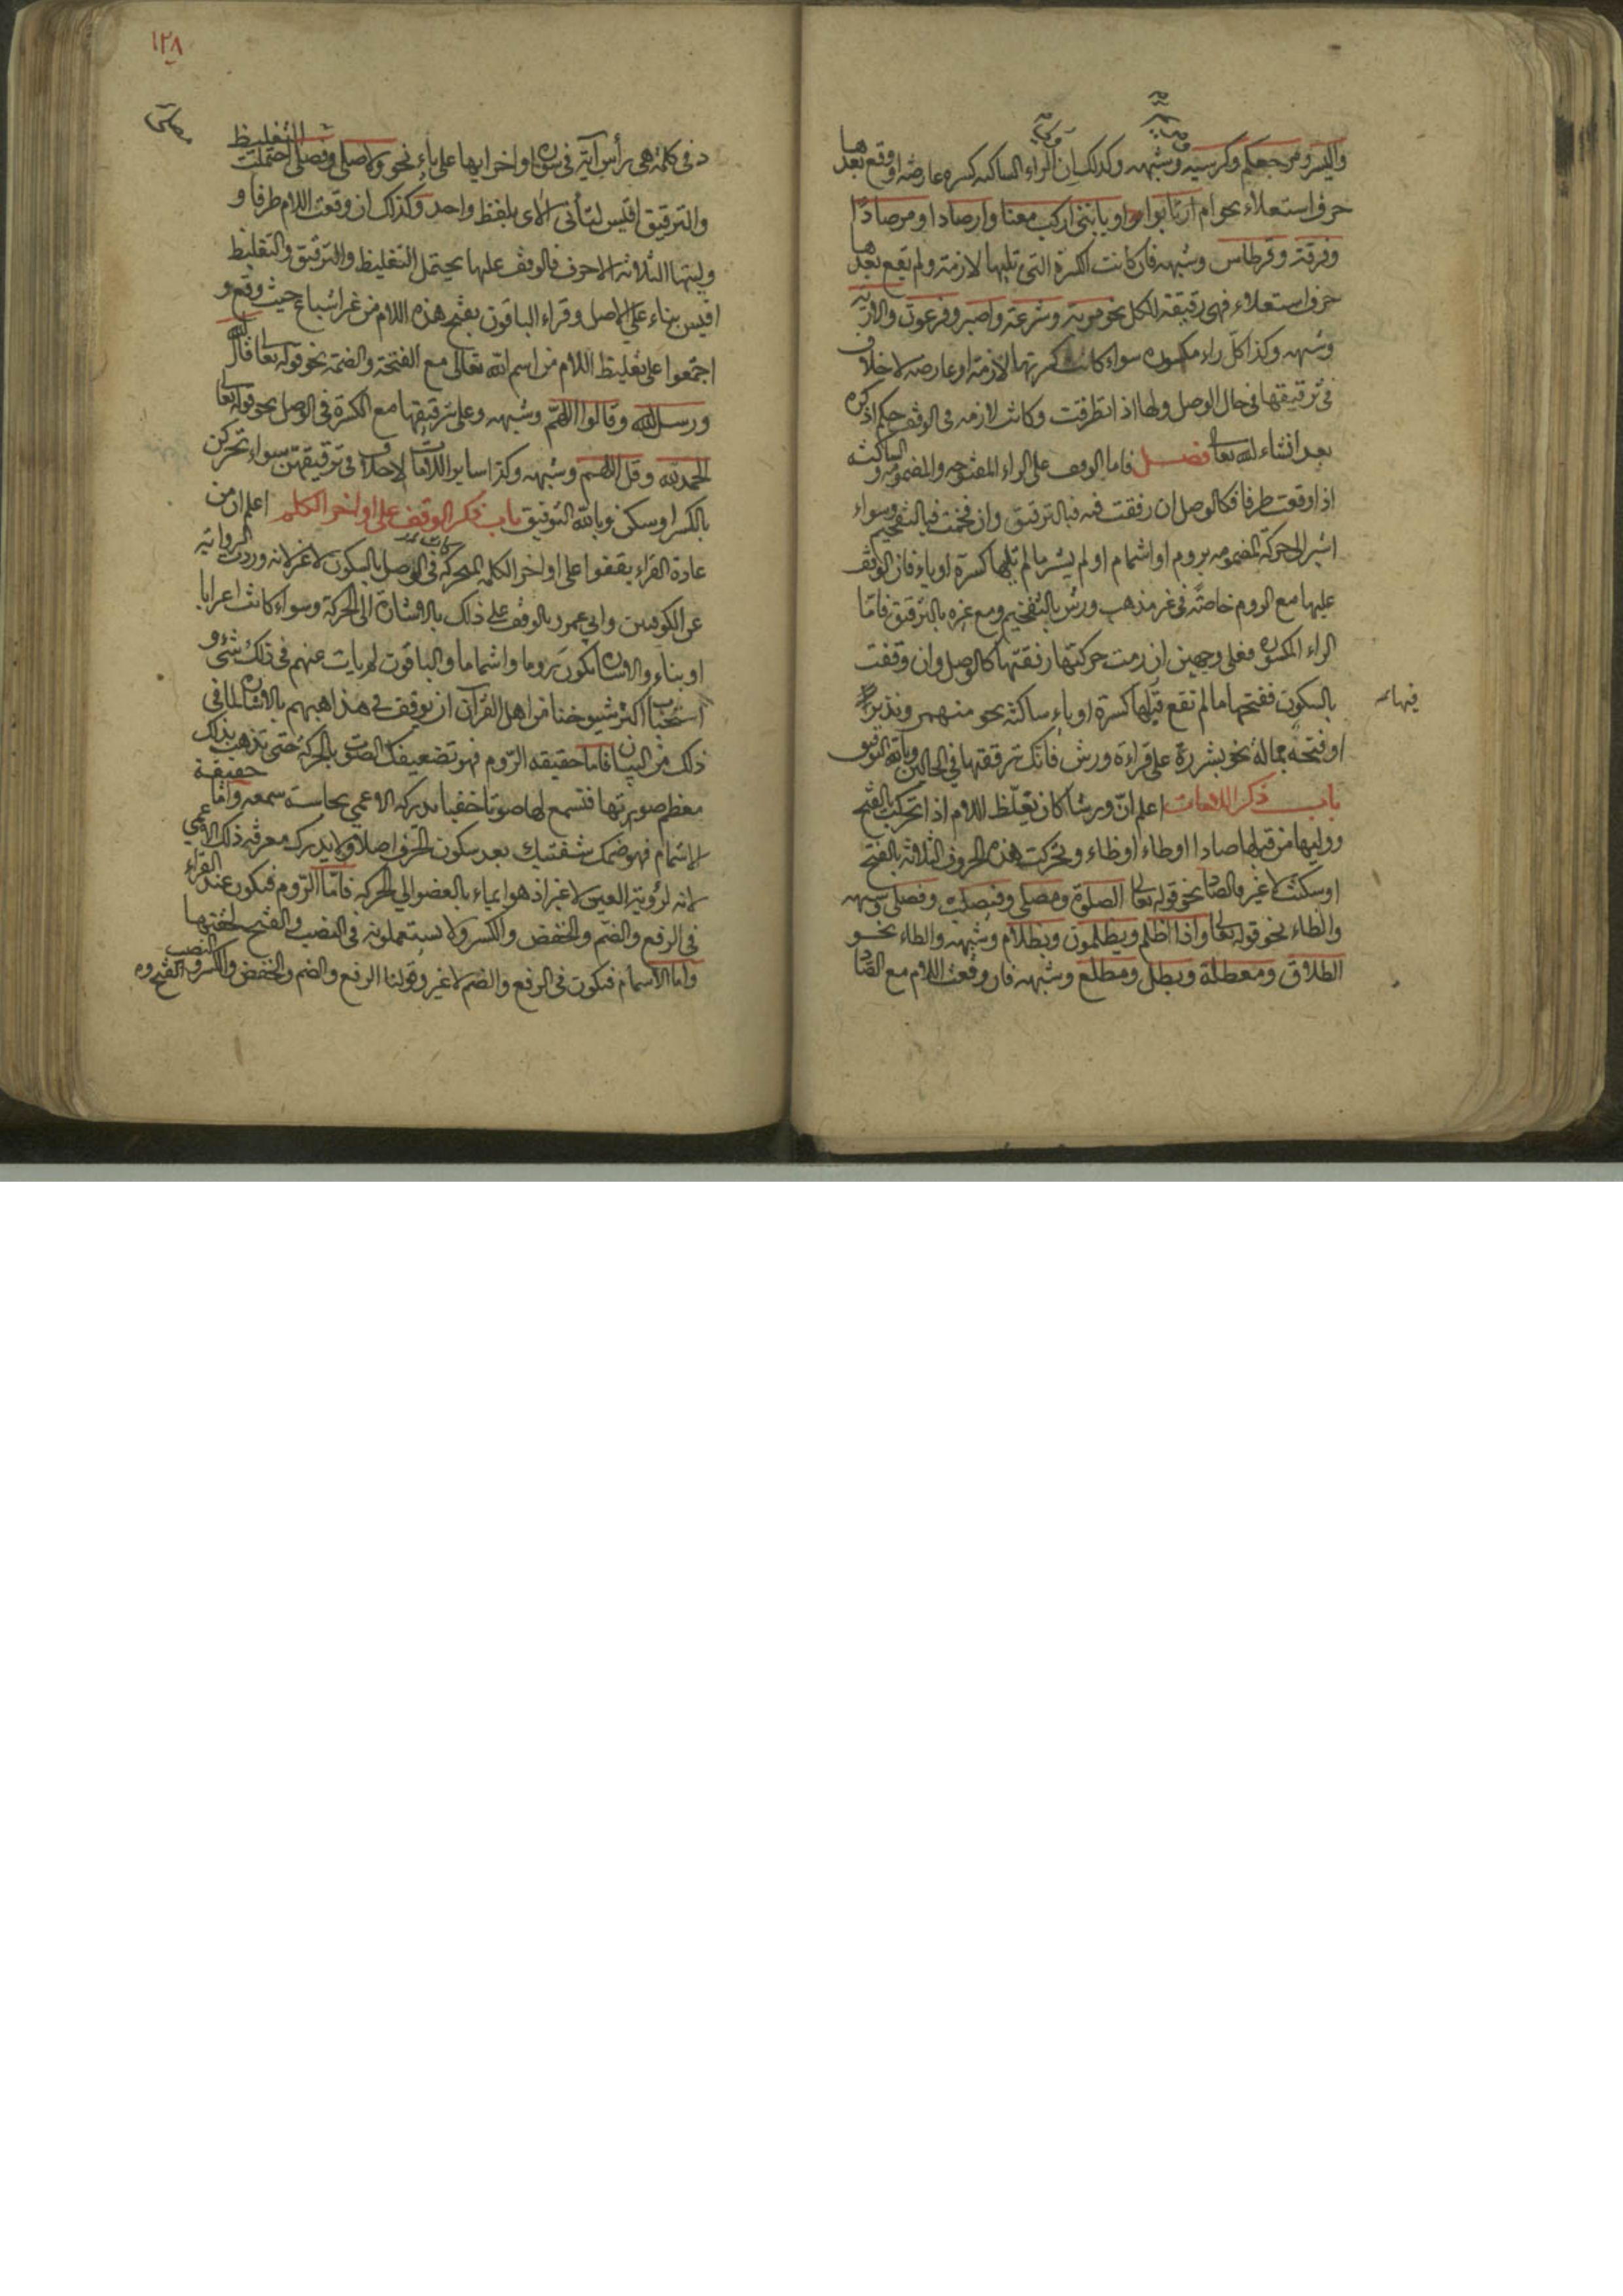 واليسر ومرجعكم وكرسيه وشبهه وكذلك ان الراء الساكنه كسره عارضه او وقع بعدها
حرف استعلاء نحو ام ارتابوا او يا بني اركب معنا وارصادا ومرصادا
وفرقة وقرطاس وشبهه فان كانت الكسرة التي تليها لازمة ولم يقع بعدها
حرف استعلاء فهي رقيقة للكل نحو مرية وشرعة واصبر وفرعون والاربة
وشبهه وكذا كل راء مكسورة سواء كانت كسرتها لازمة او عارضه لا خلاف
في ترقيقها في حال الوصل ولها اذا تطرفت وكانت لازمه في الوقف حكم اذكره
بعد انشاء الله تعا فصل فاما الوقف على الراء المفتوحه والمضمومه والساكنة
اذا وقعت طرفا فكالوصل ان رققت فيه فبالترقيق وان فخمت فبالتفخيم وسواء
اشير الى حركة المضمومه بروم او اشمام او لم يشر ما لم تلها كسرة او ياء فان الوقف
عليها مع الروم خاصة في غير مذهب ورش بالتفخيم ومع غيره بالترقيق فاما
الراء المكسوره فعلى وجهين ان رمت حركتها رققتها كالوصل وان وقفت
بالسكون فخمتها ما لم تقع قبلها كسرة او ياء ساكنة نحو منهمر ونذير
فيهما
او فتحة ممالة نحو بشرر على قراءة ورش فانك ترققها في الحالين وبالله التوفيق
باب ذكر اللامات اعلم ان ورشا كان يغلظ اللام اذا تحركت بالفتح
ووليها من قبلها صاد او طاء او ظاء وتحركت هذه الحروف الثلاثة بالفتح
او سكنت لا غير فالصاد نحو قوله تعالى الصلوة ومصلى وفيصلب وفصلى وشبهه
والظاء نحو قوله تعالى واذا اظلم ويظلمون وبظلام وشبهه والطاء نحو
الطلاق ومعطلة وبطل ومطلع وشبهه فان وقعت اللام مع الصاد
١٢٨
في كلمة هي رأس آية في سورة اواخر ايها على ياء نحو ولا صلى وفصلى احتملت التغليظ
والترقيق اقيس لتأتي الآي بلفظ واحد وكذلك ان وقعت اللام طرفا و
وليتها الثلاثة الاحرف فالوقف عليها يحتمل التغليظ والترقيق والتغليظ
اقيس بناء على الاصل وقراء الباقون بفتح هذه اللام من غير اشباع حيث وقع و
اجتمعوا على تغليظ اللام من اسم الله تعالى مع الفتحة والضمة نحو قوله تعا قال الله
ورسل الله وقالوا اللهم وشبهه وعلى ترقيقها مع الكسرة في الوصل نحو قوله تعا
الحمد لله وقل اللهم وشبهه وكذا ساير اللامات لا خلاف في ترقيقهن سواء تحركن
بالكسر او سكن وبالله التوفيق باب ذكر الوقف على اواخر الكلم اعلم ان من
عادة القراء يقفوا على اواخر الكلم المتحركة في الوصل بالسكون لا غير لانه وردت الرواية
عن الكوفيين وابي عمرو بالوقف على ذلك بالاشارة الى الحركة وسواء كانت اعرابا
او بناء والاشارة تكون روما واشماما والباقون لم يات عنهم في ذلك شيء و
استحباب اكثر شيوخنا من اهل القرآن ان يوقف في مذاهبهم بالاشارة لما في
ذلك من البيان فاما حقيقه الروم فهو تضعيفك الصوت بالحركة حتى تذهب بذلك
معظم صوتها فتسمع لها صوتا خفيا يدركه الاعمي بحاسة سمعه واما حقيقة
الاشمام فهو ضمك شفتيك بعد سكون الحرف اصلا ولا يدرك معرفة ذلك الاعمي
لانه لرؤية العين لا غير اذ هو ايماء بالعضو الى الحركة فاما الروم فيكون عند القراء
في الرفع والضم والخفض والكسر ولا يستعملونه في النصب والفتح لخفتهما
واما الاشمام فيكون في الرفع والضم لا غير وقولنا الرفع والضم والخفض والكسر والنصب والفتح